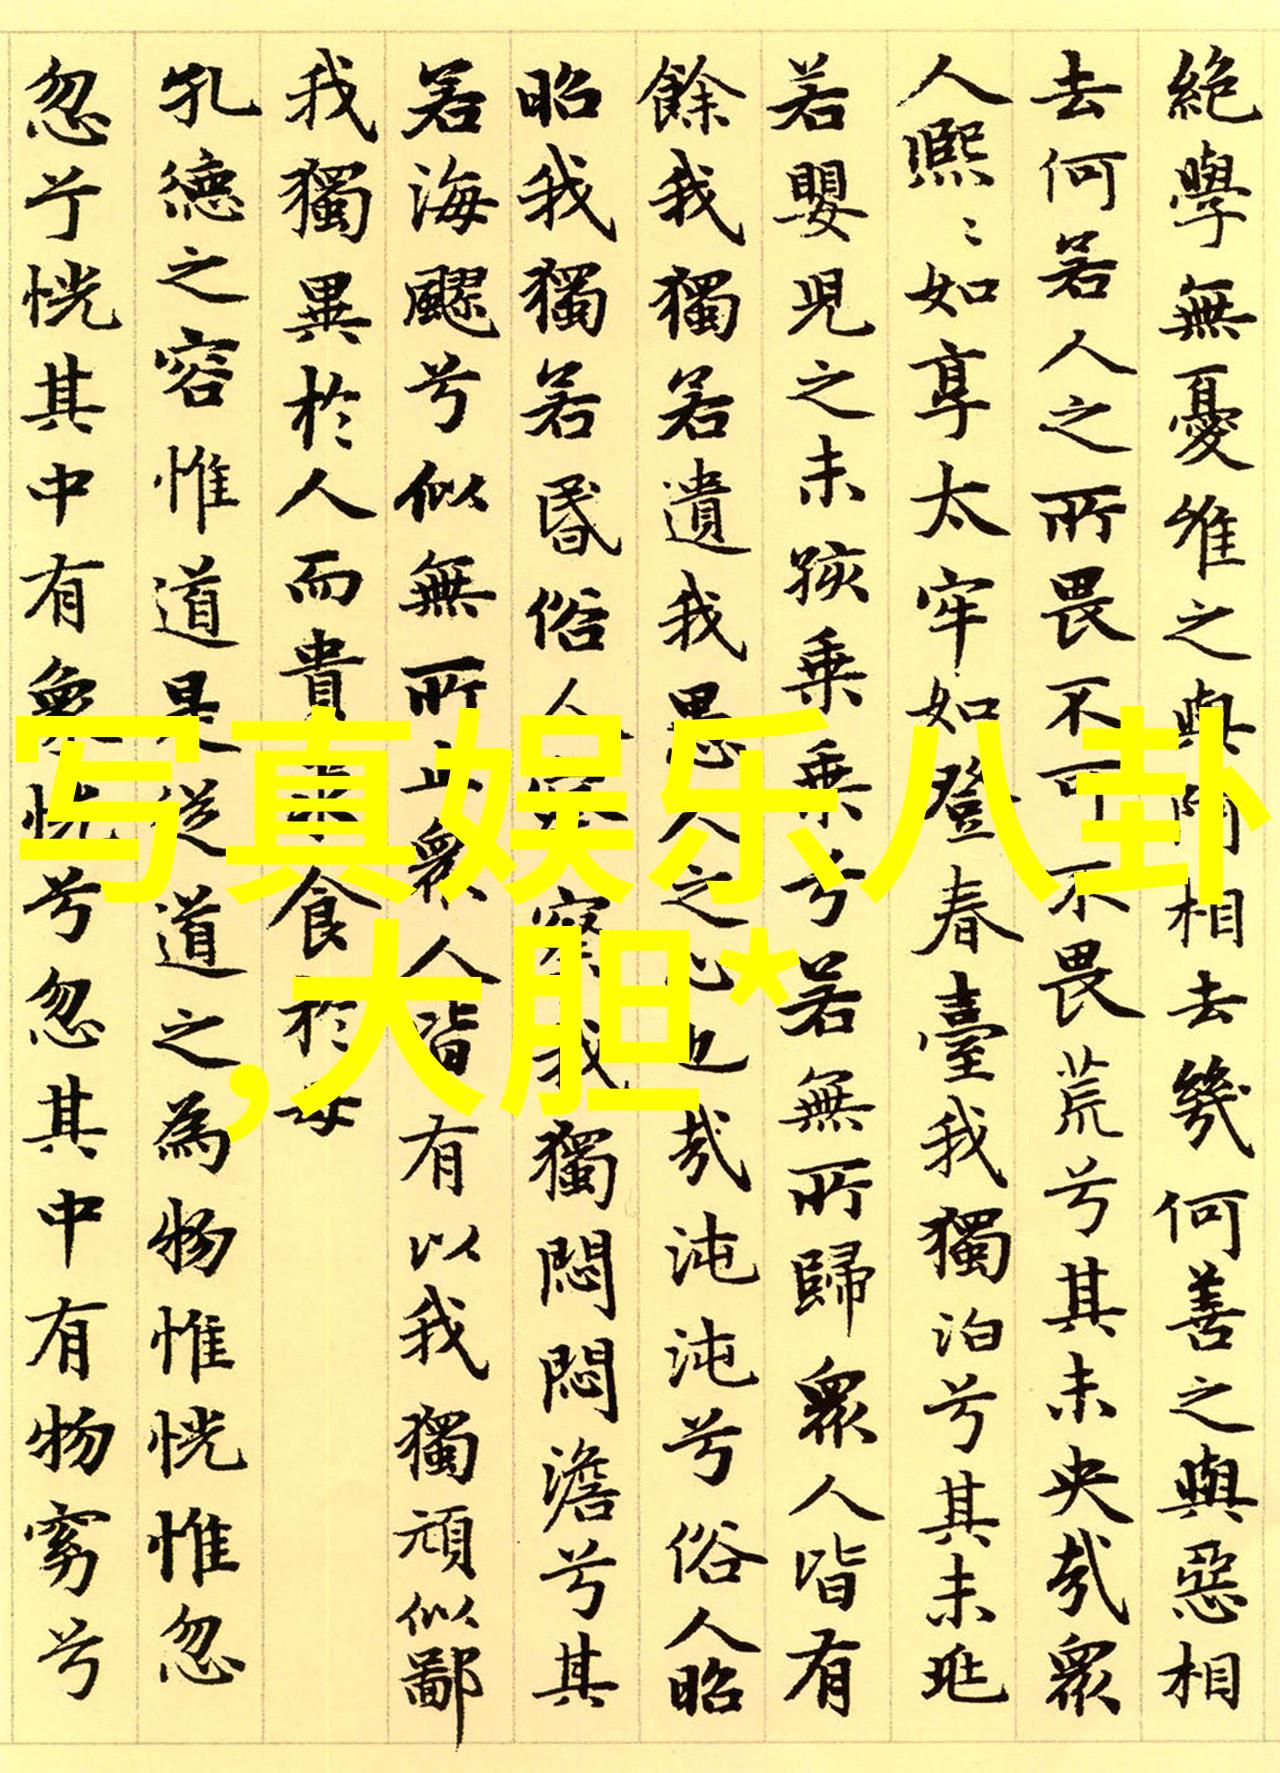 絶學無憂唯之與阿相去幾何善之與惡相
去何若人之所畏不可不畏荒兮其未央哉眾
人熙〻如享太牢如登春臺我獨泊兮其未兆
若嬰兒之未孩乗乗兮若無所歸眾人皆有
餘我獨若遺我愚人之心也哉沌沌兮俗人昭
昭我獨若昏俗人察察我獨悶悶澹兮其
若海飂兮似無所止眾人皆有以我獨頑似鄙
我獨異於人而貴求食於母
孔德之容惟道是從道之為物惟恍惟忽
忽兮恍其中有象恍兮忽其中有物窈兮
写真娱乐八卦
,大胆*